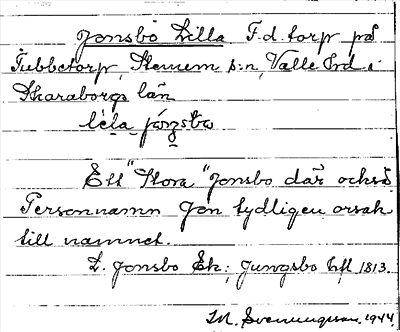 Jonsbo Lilla F.d. torp på
Tubbetorp, Stenum s:n, Valle hrd i
Skaraborgs län
lela jonsbo
Ett "Stora" Jonsbo där också
Personnamn Jon tydligen orsak
till namnet.
L. Jonsbo Ek.; Jungsbo hfl 1813.
M. Svenungsson. 1944